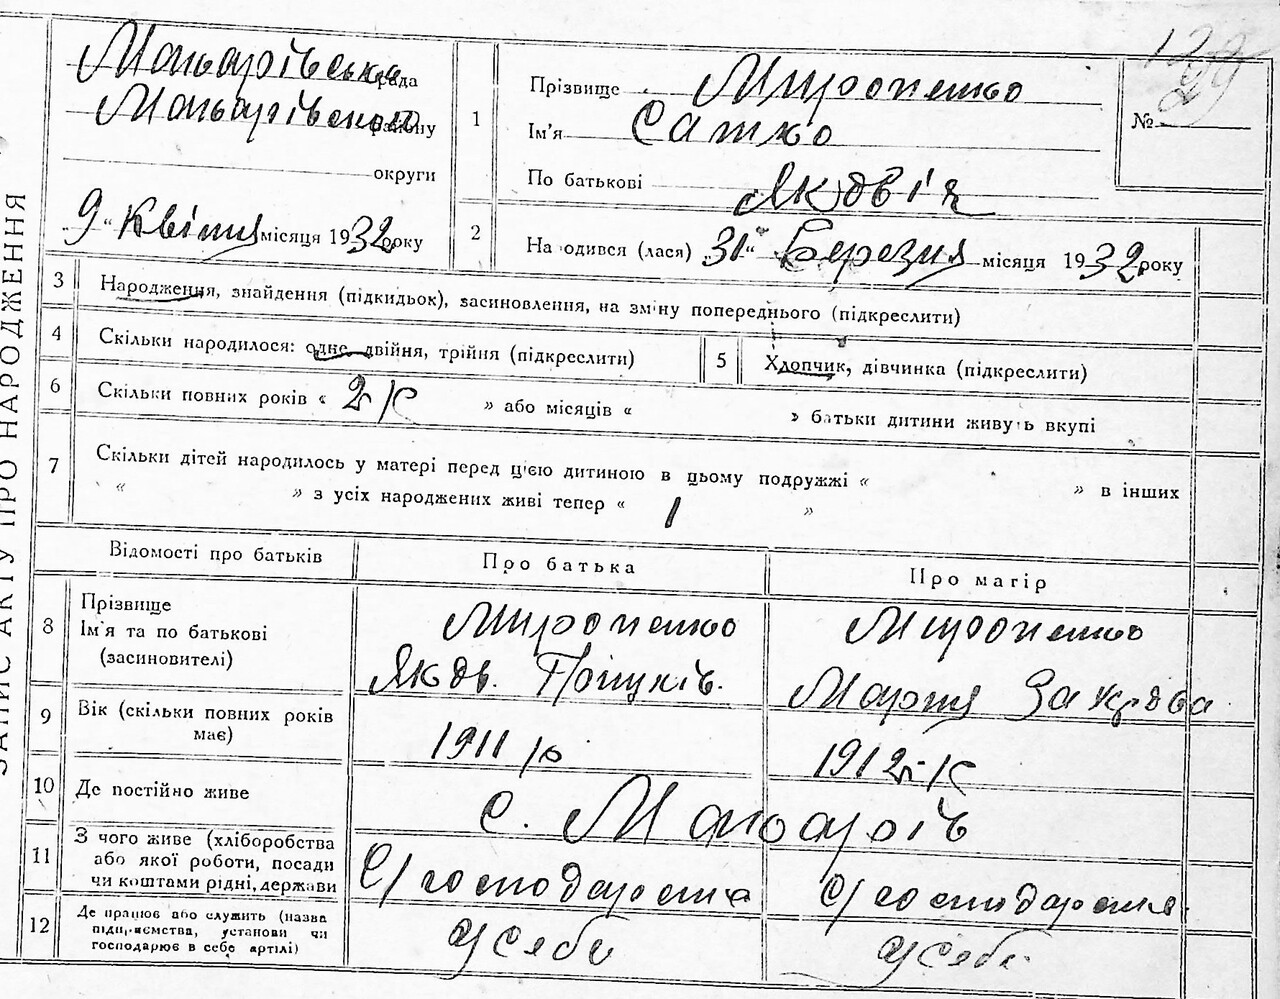 ЗАПИС АКТУ ПРО НАРОДЖЕННЯ
Макарівська рада
Макарівського району
округи
9 " Квітня місяця 1932 року
1
Прізвище Мироненко
Ім'я Сашко
По батькові Яковів
№ 129
2
Народився (лася) „31" Березня місяця 1932 року
3 Народження, знайдення (підкидьок), засиновлення, на зміну попереднього (підкреслити)
4 Скільки народилося: одне, двійня, трійня (підкреслити)
5 Хлопчик, дівчинка (підкреслити)
6 Скільки повних років « 2 р » або місяців « » батьки дитини живуть вкупі
7 Скільки дітей народилось у матері перед цією дитиною в цьому подружжі « » в інших
« » з усіх народжених живі тепер « 1 »
Відомості про батьків Про батька Про матір
8 Прізвище
Ім'я та по батькові
(засиновителі)
Мироненко
Яків.
Мироненко
Марія Захарова
9 Вік (скільки повних років
має)
1911 р
1912 р
10 Де постійно живе с. Макарів
11 З чого живе (хліборобства
або якої роботи, посади
чи коштами рідні, держави
С/господарства
С/господарства
12 Де працює або служить (назва
підприємства, установи чи
господарює в себе артілі)
У себе
У себе